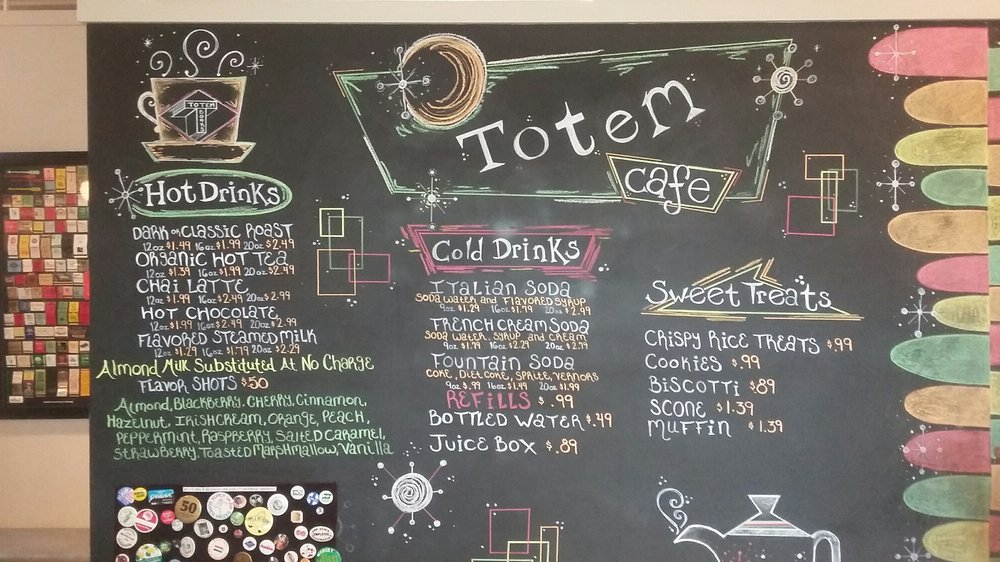 TOTEM
BOOKS
Totem
cafe
Hot Drinks
DARK or CLASSIC ROAST
12oz $1.99 16oz $1.99 20oz $2.49
ORGANIC HOT TEA
12oz $1.39 16oz $1.99 20oz $2.49
CHAI LATTE
12oz $1.99 16oz $2.49 20oz $2.99
HOT CHOCOLATE
12oz $1.99 16oz $2.49 20oz $2.99
FLAVORED STEAMED MILK
12oz $1.29 16oz $1.79 20oz $2.29
Almond Milk Substituted At No Charge
FLAVOR SHOTS $.50
Almond, Blackberry, Cherry, Cinnamon,
Hazelnut, Irish Cream, Orange, Peach,
Peppermint, Raspberry, Salted Caramel,
Strawberry, Toasted Marshmallow, Vanilla
Cold Drinks
ITALIAN SODA
SODA WATER AND FLAVORED SYRUP
9oz $1.29 16oz $1.79 20oz $2.99
FRENCH CREAM SODA
SODA WATER, SYRUP and CREAM
9oz $1.79 16oz $2.29 20oz $2.79
FOUNTAIN SODA
COKE, DIET COKE, SPRITE, VERNORS
9oz $.99 16oz $1.49 20oz $1.99
REFILLS $.99
BOTTLED WATER $.49
JUICE BOX $.89
Sweet Treats
CRISPY RICE TREATS $.99
COOKIES $.99
BISCOTTI $.89
SCONE $1.39
MUFFIN $1.39
50